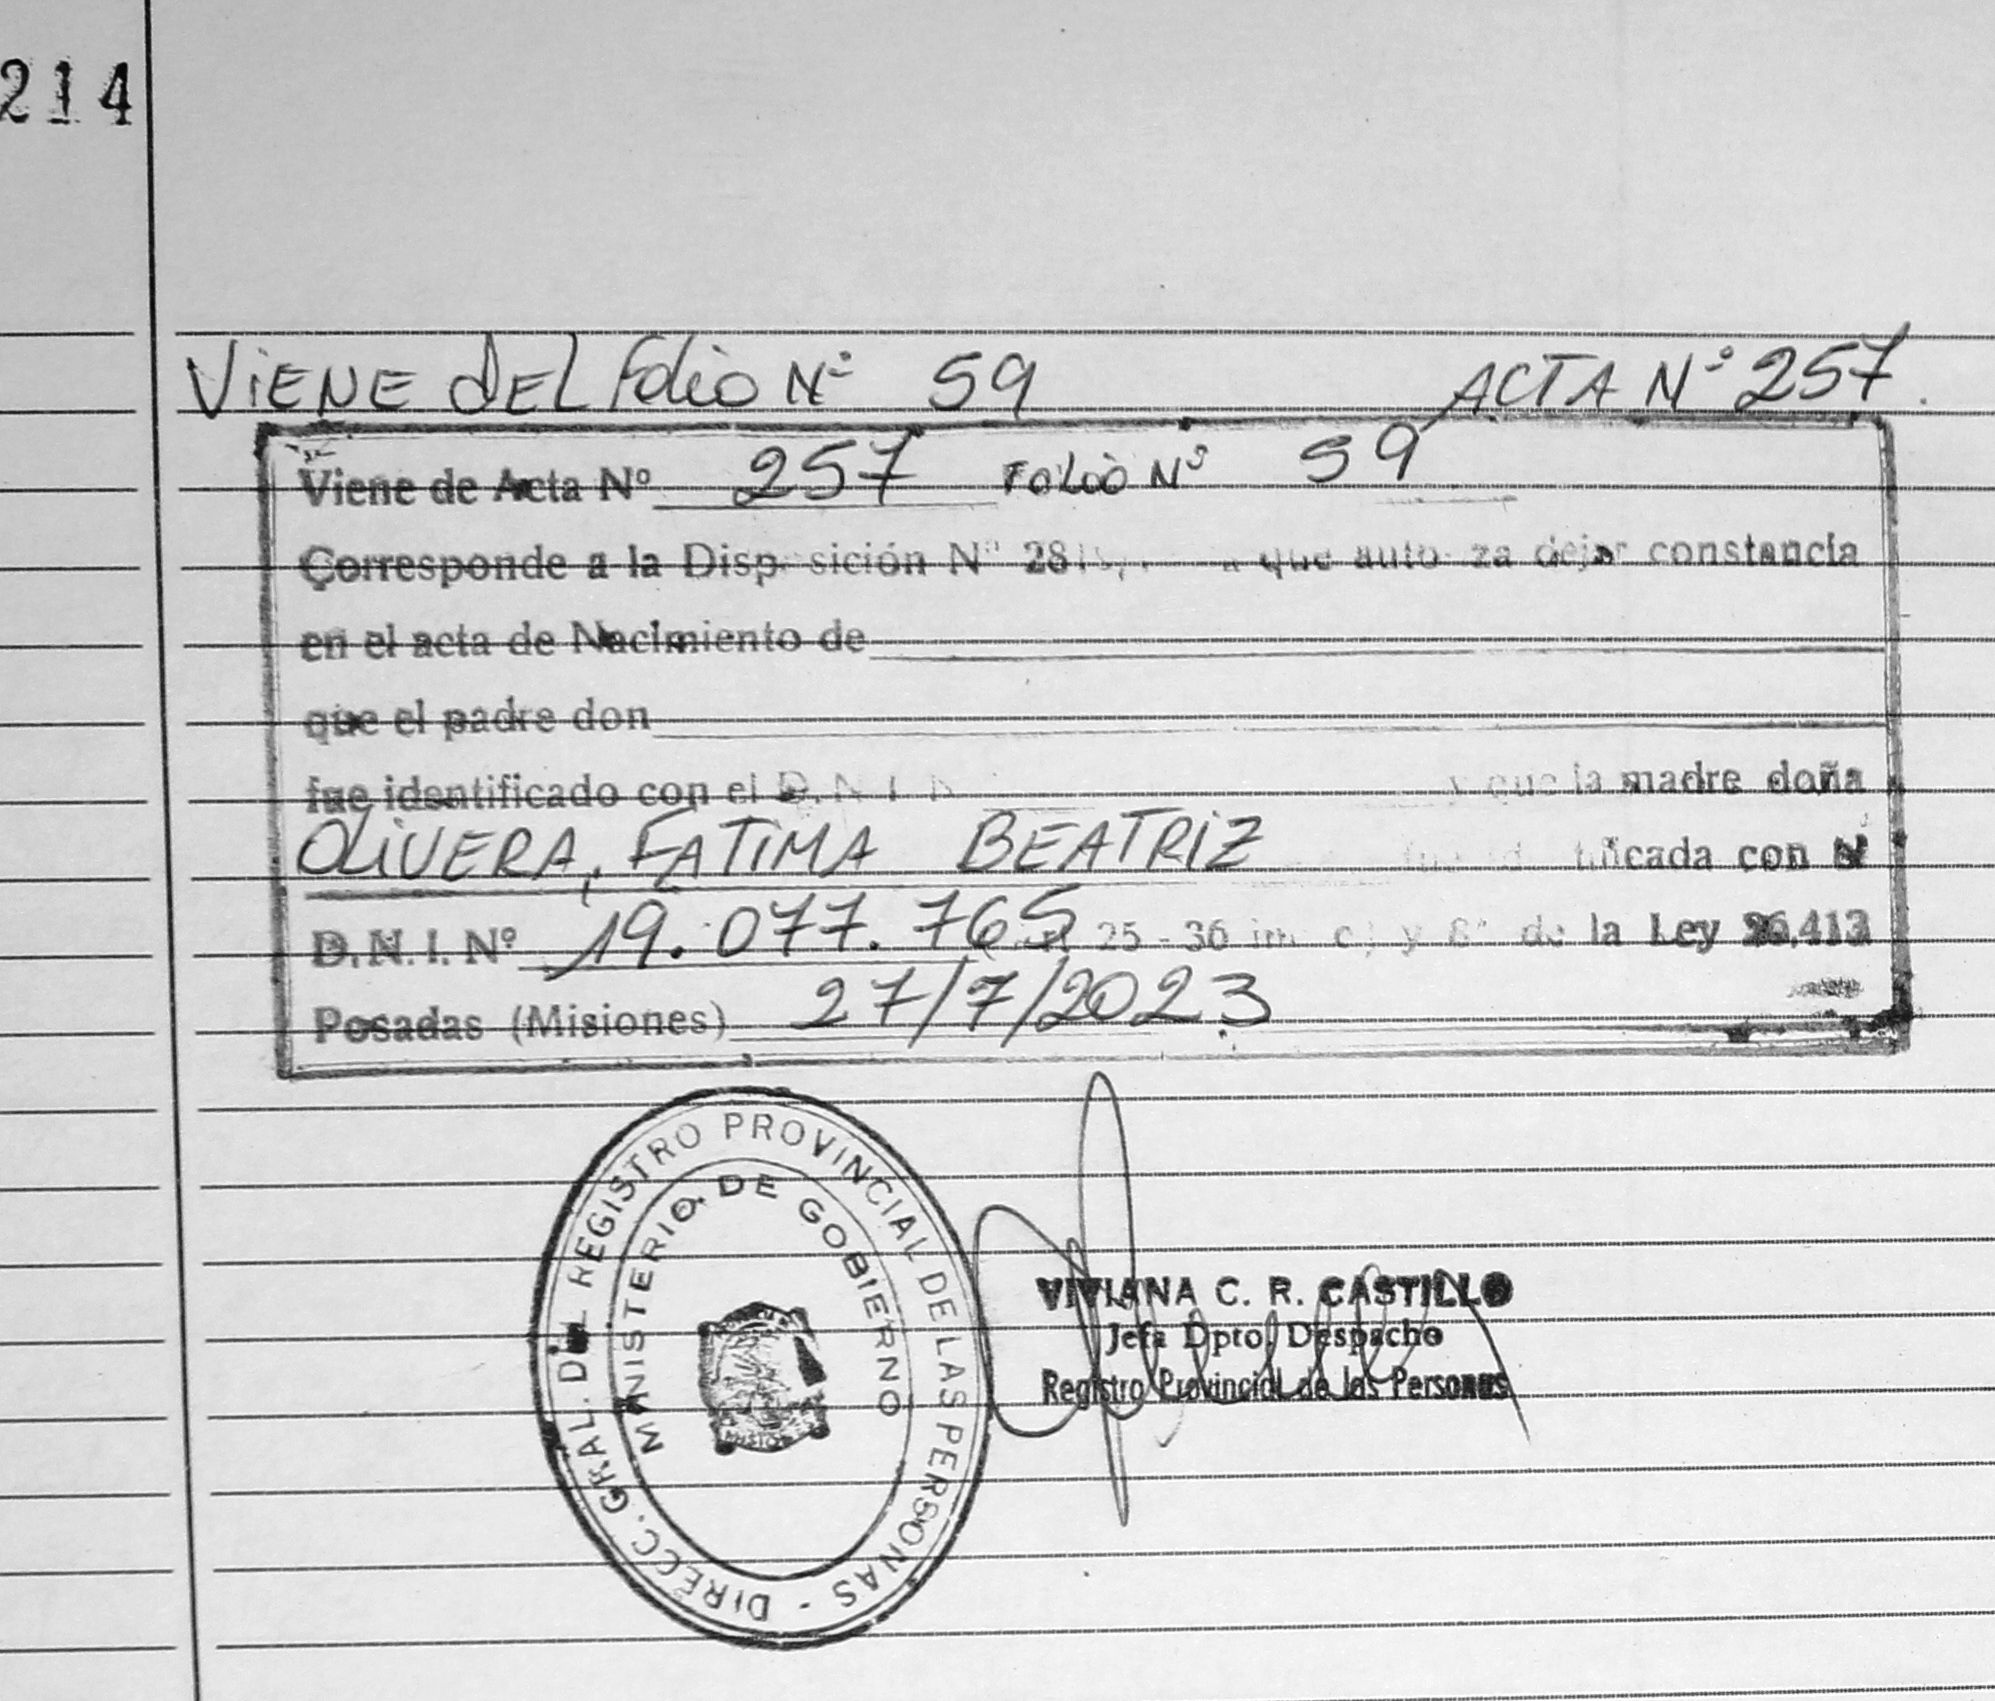 214
VIENE DEL Folio N° 59 ACTA N° 257.
Viene de Acta Nº 257 FOLIO N° 59
Corresponde a la Disposición Nº 28 que autoriza dejar constancia
en el acta de Nacimiento de
que el padre don
fue identificado con el D.N.I. N y que la madre doña
OLIVERA, FATIMA BEATRIZ identificada con el
D.N.I. Nº 19.077.765 25 - 36 in c) y 8° de la Ley 26.413
Posadas (Misiones) 27/7/2023
DIRECC. GRAL. DEL REGISTRO PROVINCIAL DE LAS PERSONAS -
MINISTERIO DE GOBIERNO
VIVIANA C. R. CASTILLO
Jefa Dpto. Despacho
Registro Provincial de las Personas